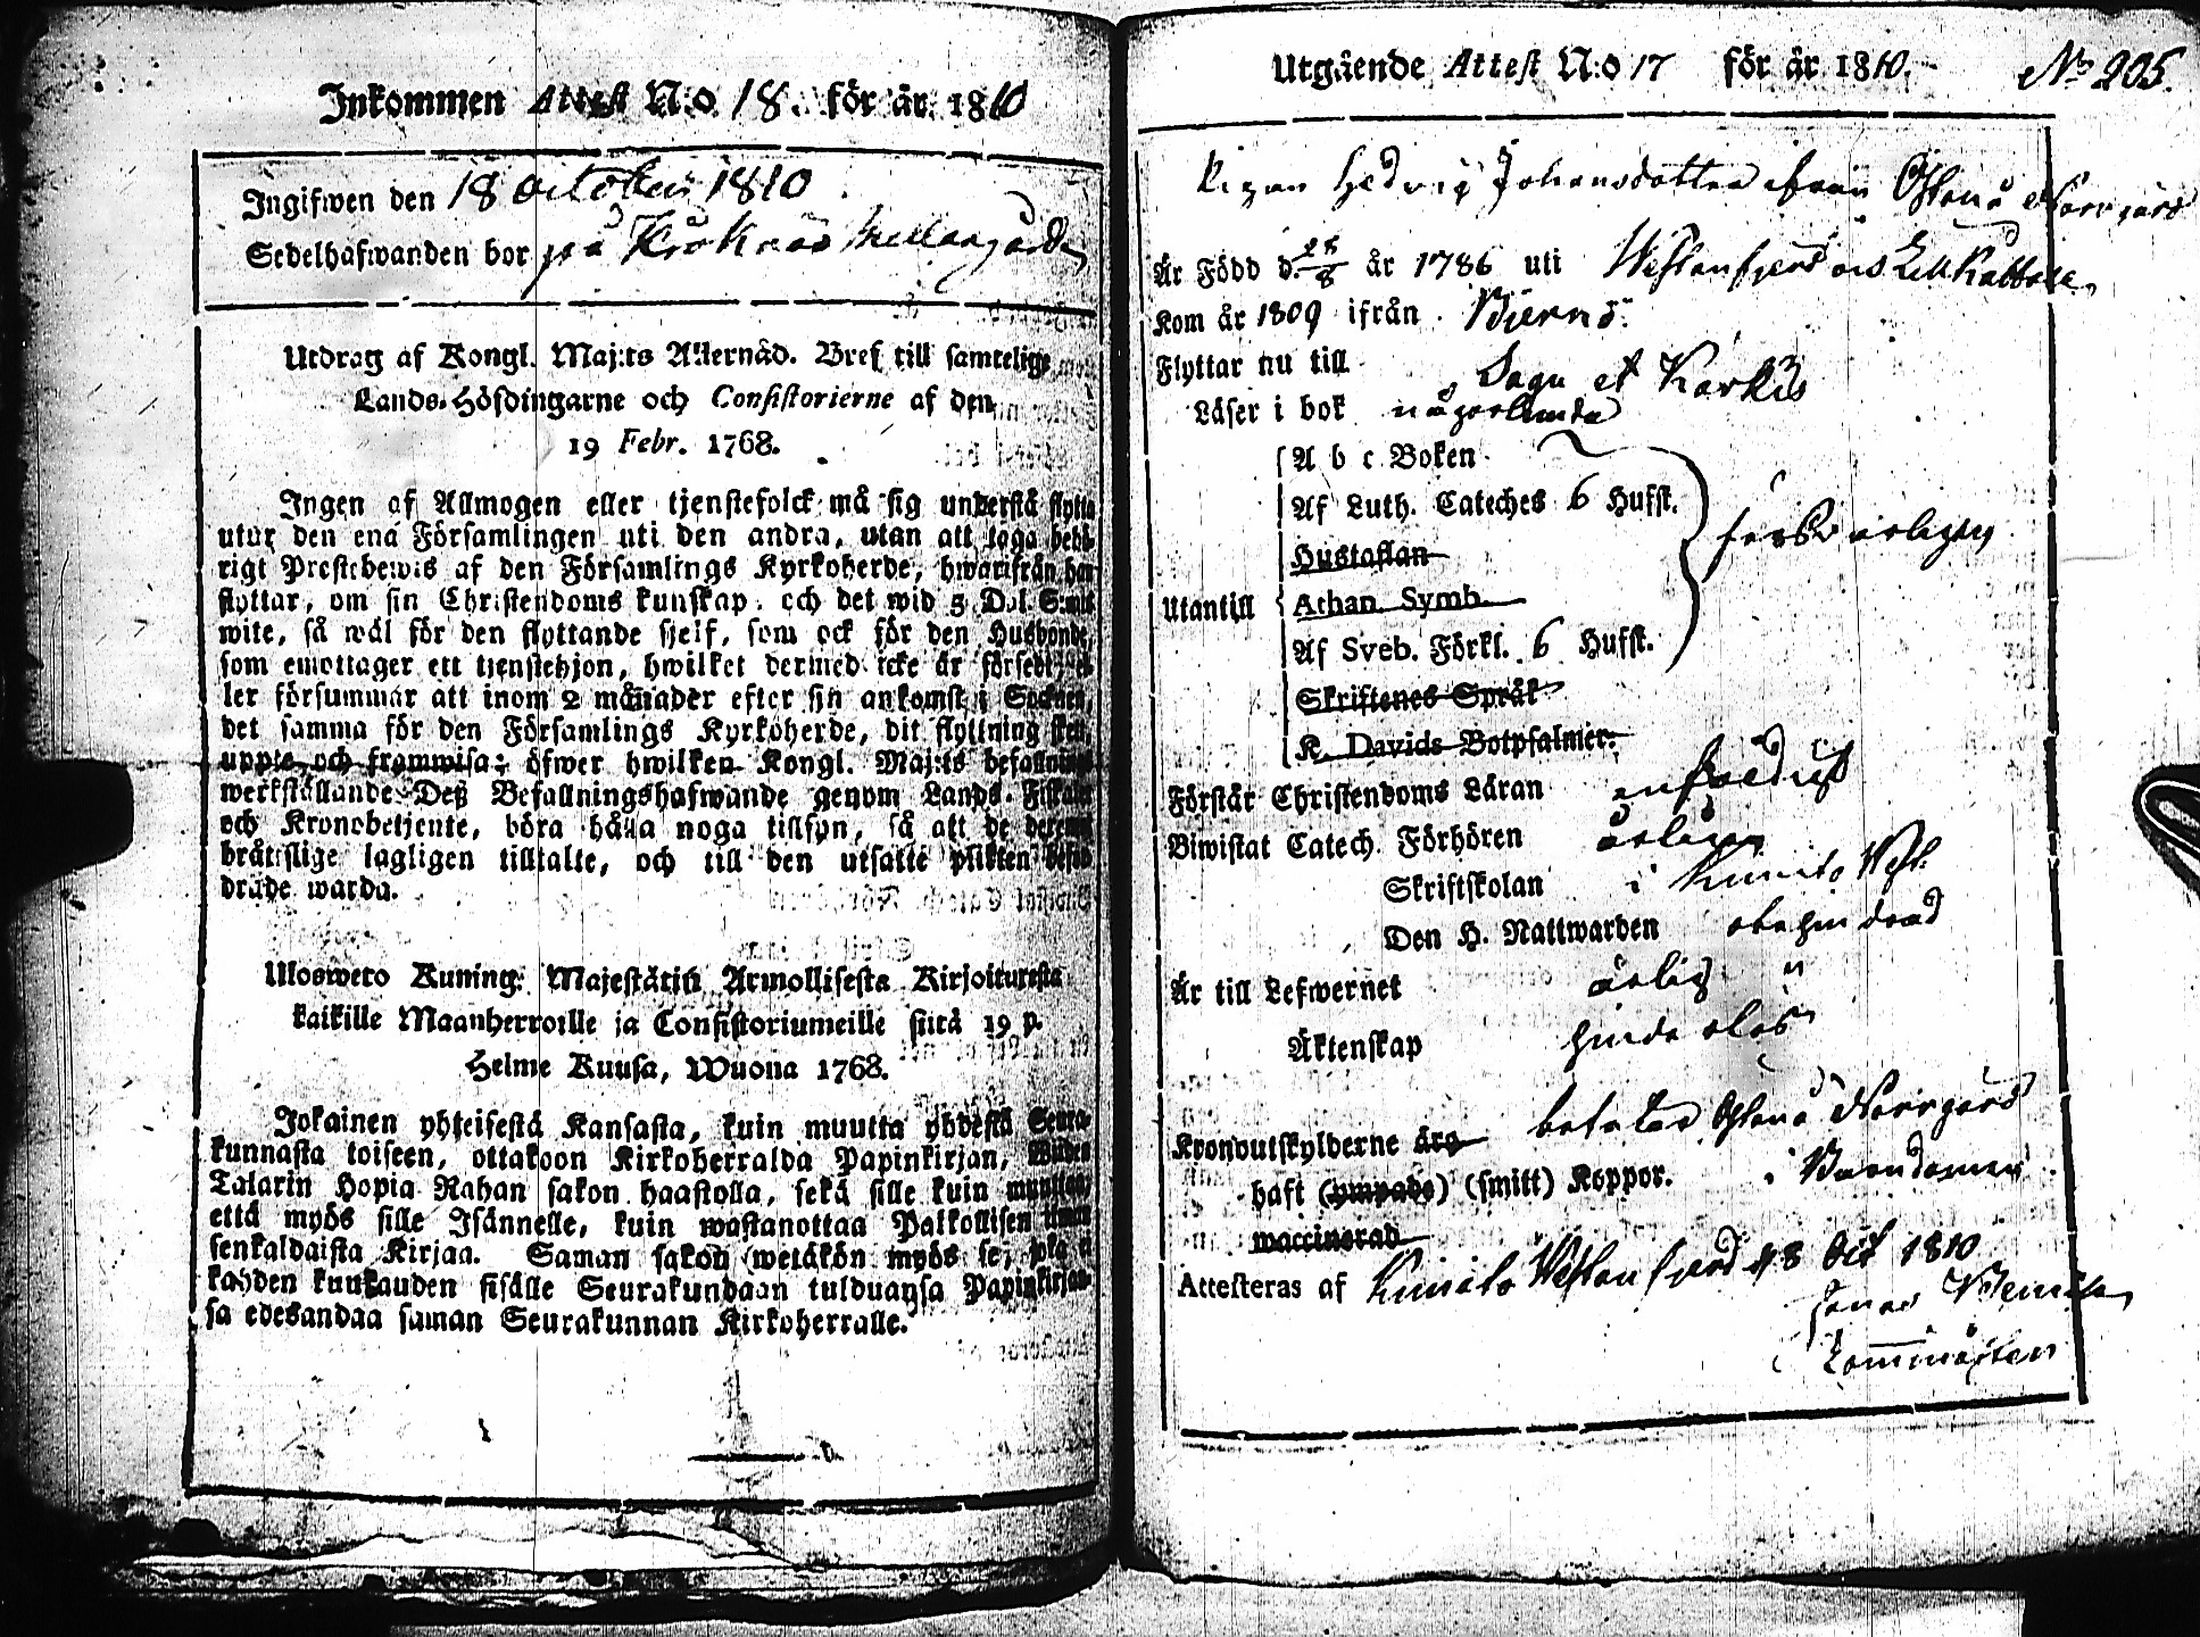 Inkommen Attest N:o 18. för år 1810
Ingifwen den 18 october 1810
Sedelhafwanden bor på Kroknäs Mellangård
Utdrag af Kongl. Maj:ts Allernåd. Bref till samtelige
Lands-Höfdingarne och Consistorierne af den
19 Febr. 1768.
Ingen af Allmogen eller tjenstefolck må sig understå flytta
utur den ena Församlingen uti den andra, utan att taga behö-
rigt Prestebewis af den Församlings Kyrkoherde, hwarifrån han
flyttar, om sin Christendoms kunskap och det wid 5 Dal. S:mt
wite, så wäl för den flyttande sjelf, som ock för den Husbonde,
som emottager ett tjenstehjon, hwilket dermed icke är försedt, el-
ler försummar att inom 2 månader efter sin ankomst i Socknen,
det samma för den Församlings Kyrkoherde, dit flyttning sker,
uppte och framwisa; öfwer hwilken Kongl. Maj:ts befallnings
werkställande Deß Befallningshafwande genom Lands-Fiskaler
och Kronobetjente, böra hålla noga tillsyn, så att de deremot
bråttslige lagligen tilltalte, och till den utsatte plikten befor-
drade warda.
Ulosweto Kuning: Majestätin Armollisesta Kirjoituresta
kaikille Maanherroille ja Consistoriumeille siitä 19 p.
Helme Kuusa, Wuona 1768.
Jokainen yhteisestä Kansasta, kuin muutta yhdestä Seura-
kunnasta toiseen, ottakoon Kirkoherralda Papinkirjan, Wiiden
Talarin Hopia Rahan sakon haastolla, sekä sille kuin muuttaa,
että myös sille Isännelle, kuin wastanottaa Palkollisen ilman
senkaldaista Kirjaa. Saman sakon wetäkön myös se, joka ei
kahden kuukauden sisälle Seurakundaan tulduansa Papinkirjan-
sa edesandaa saman Seurakunnan Kirkoherralle.
Utgående Attest N:o 17 för år 1810. No 205.
Pigan Hedvig Johansdotter ifrån Östanå Norrgård
Är Född d. 28/8 år 1786 uti Westanfjerd
Kom år 1809 ifrån Bjernå.
Flyttar nu till Sagu et Karkis
Läser i bok någorlunda
A b c Boken
Af Luth. Cateches 6 Hufst.
Hustaflan
försvarligen
Utantill Athan. Symb.
Af Sveb. Förkl. 6 Hufst.
Skriftenes Språk
K. Davids Botpsalmer.
Förstår Christendoms Läran enfaldigt
Biwistat Catech. Förhören årligen
Skriftskolan i Kimito West.
Den H. Nattwarden obehindrad
Är till Lefwernet ärlig
Äktenskap hinderslös
Kronoutskylderne äro betalas Östanå Norrgård
haft (ympade) (smitt) Koppor. i Barndomen
waccinerad
Attesteras af Kimito Westanfjerd d 8 Oct 1810
Jonas